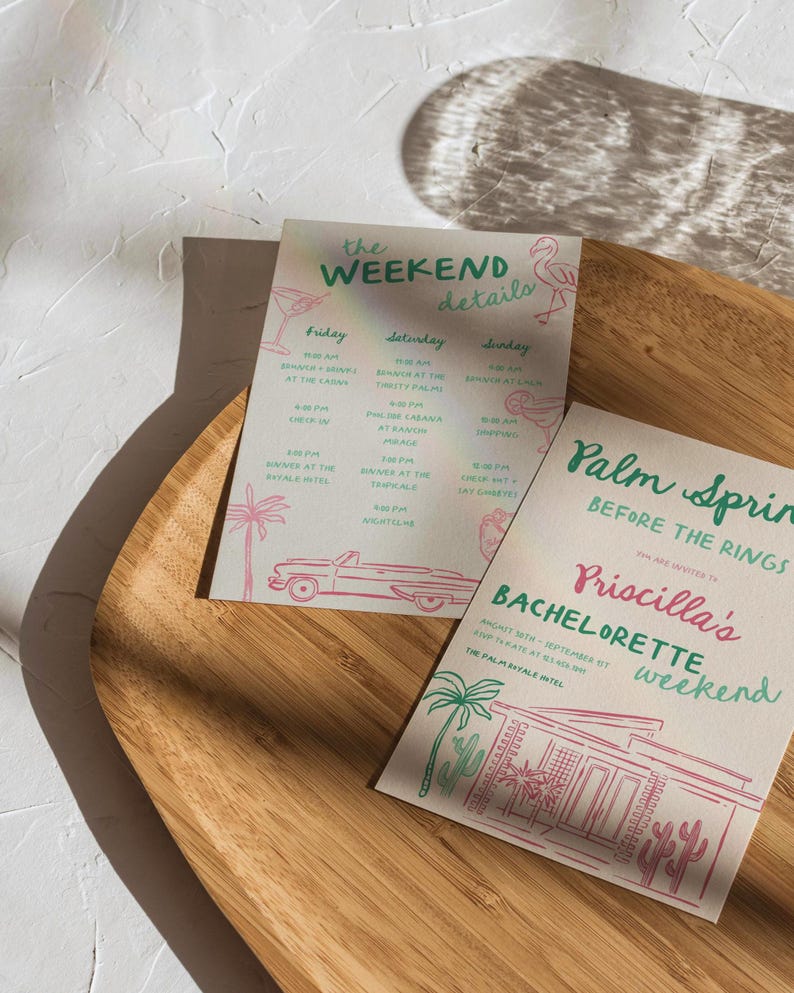 the
WEEKEND
details
Friday
11:00 AM
BRUNCH + DRINKS
AT THE CASINO
4:00 PM
CHECK IN
8:00 PM
DINNER AT THE
ROYALE HOTEL
Saturday
11:00 AM
BRUNCH AT THE
THIRSTY PALMS
4:00 PM
POOLSIDE CABANA
AT RANCHO
MIRAGE
7:00 PM
DINNER AT THE
TROPICALE
9:00 PM
NIGHTCLUB
Sunday
9:00 AM
BRUNCH AT LULU
10:00 AM
SHOPPING
12:00 PM
CHECK OUT +
SAY GOODBYES
Palm Sprin
BEFORE THE RINGS
YOU ARE INVITED TO
Priscilla's
BACHELORETTE
weekend
AUGUST 30TH - SEPTEMBER 1ST
RSVP TO KATE AT 123.456.7891
THE PALM ROYALE HOTEL